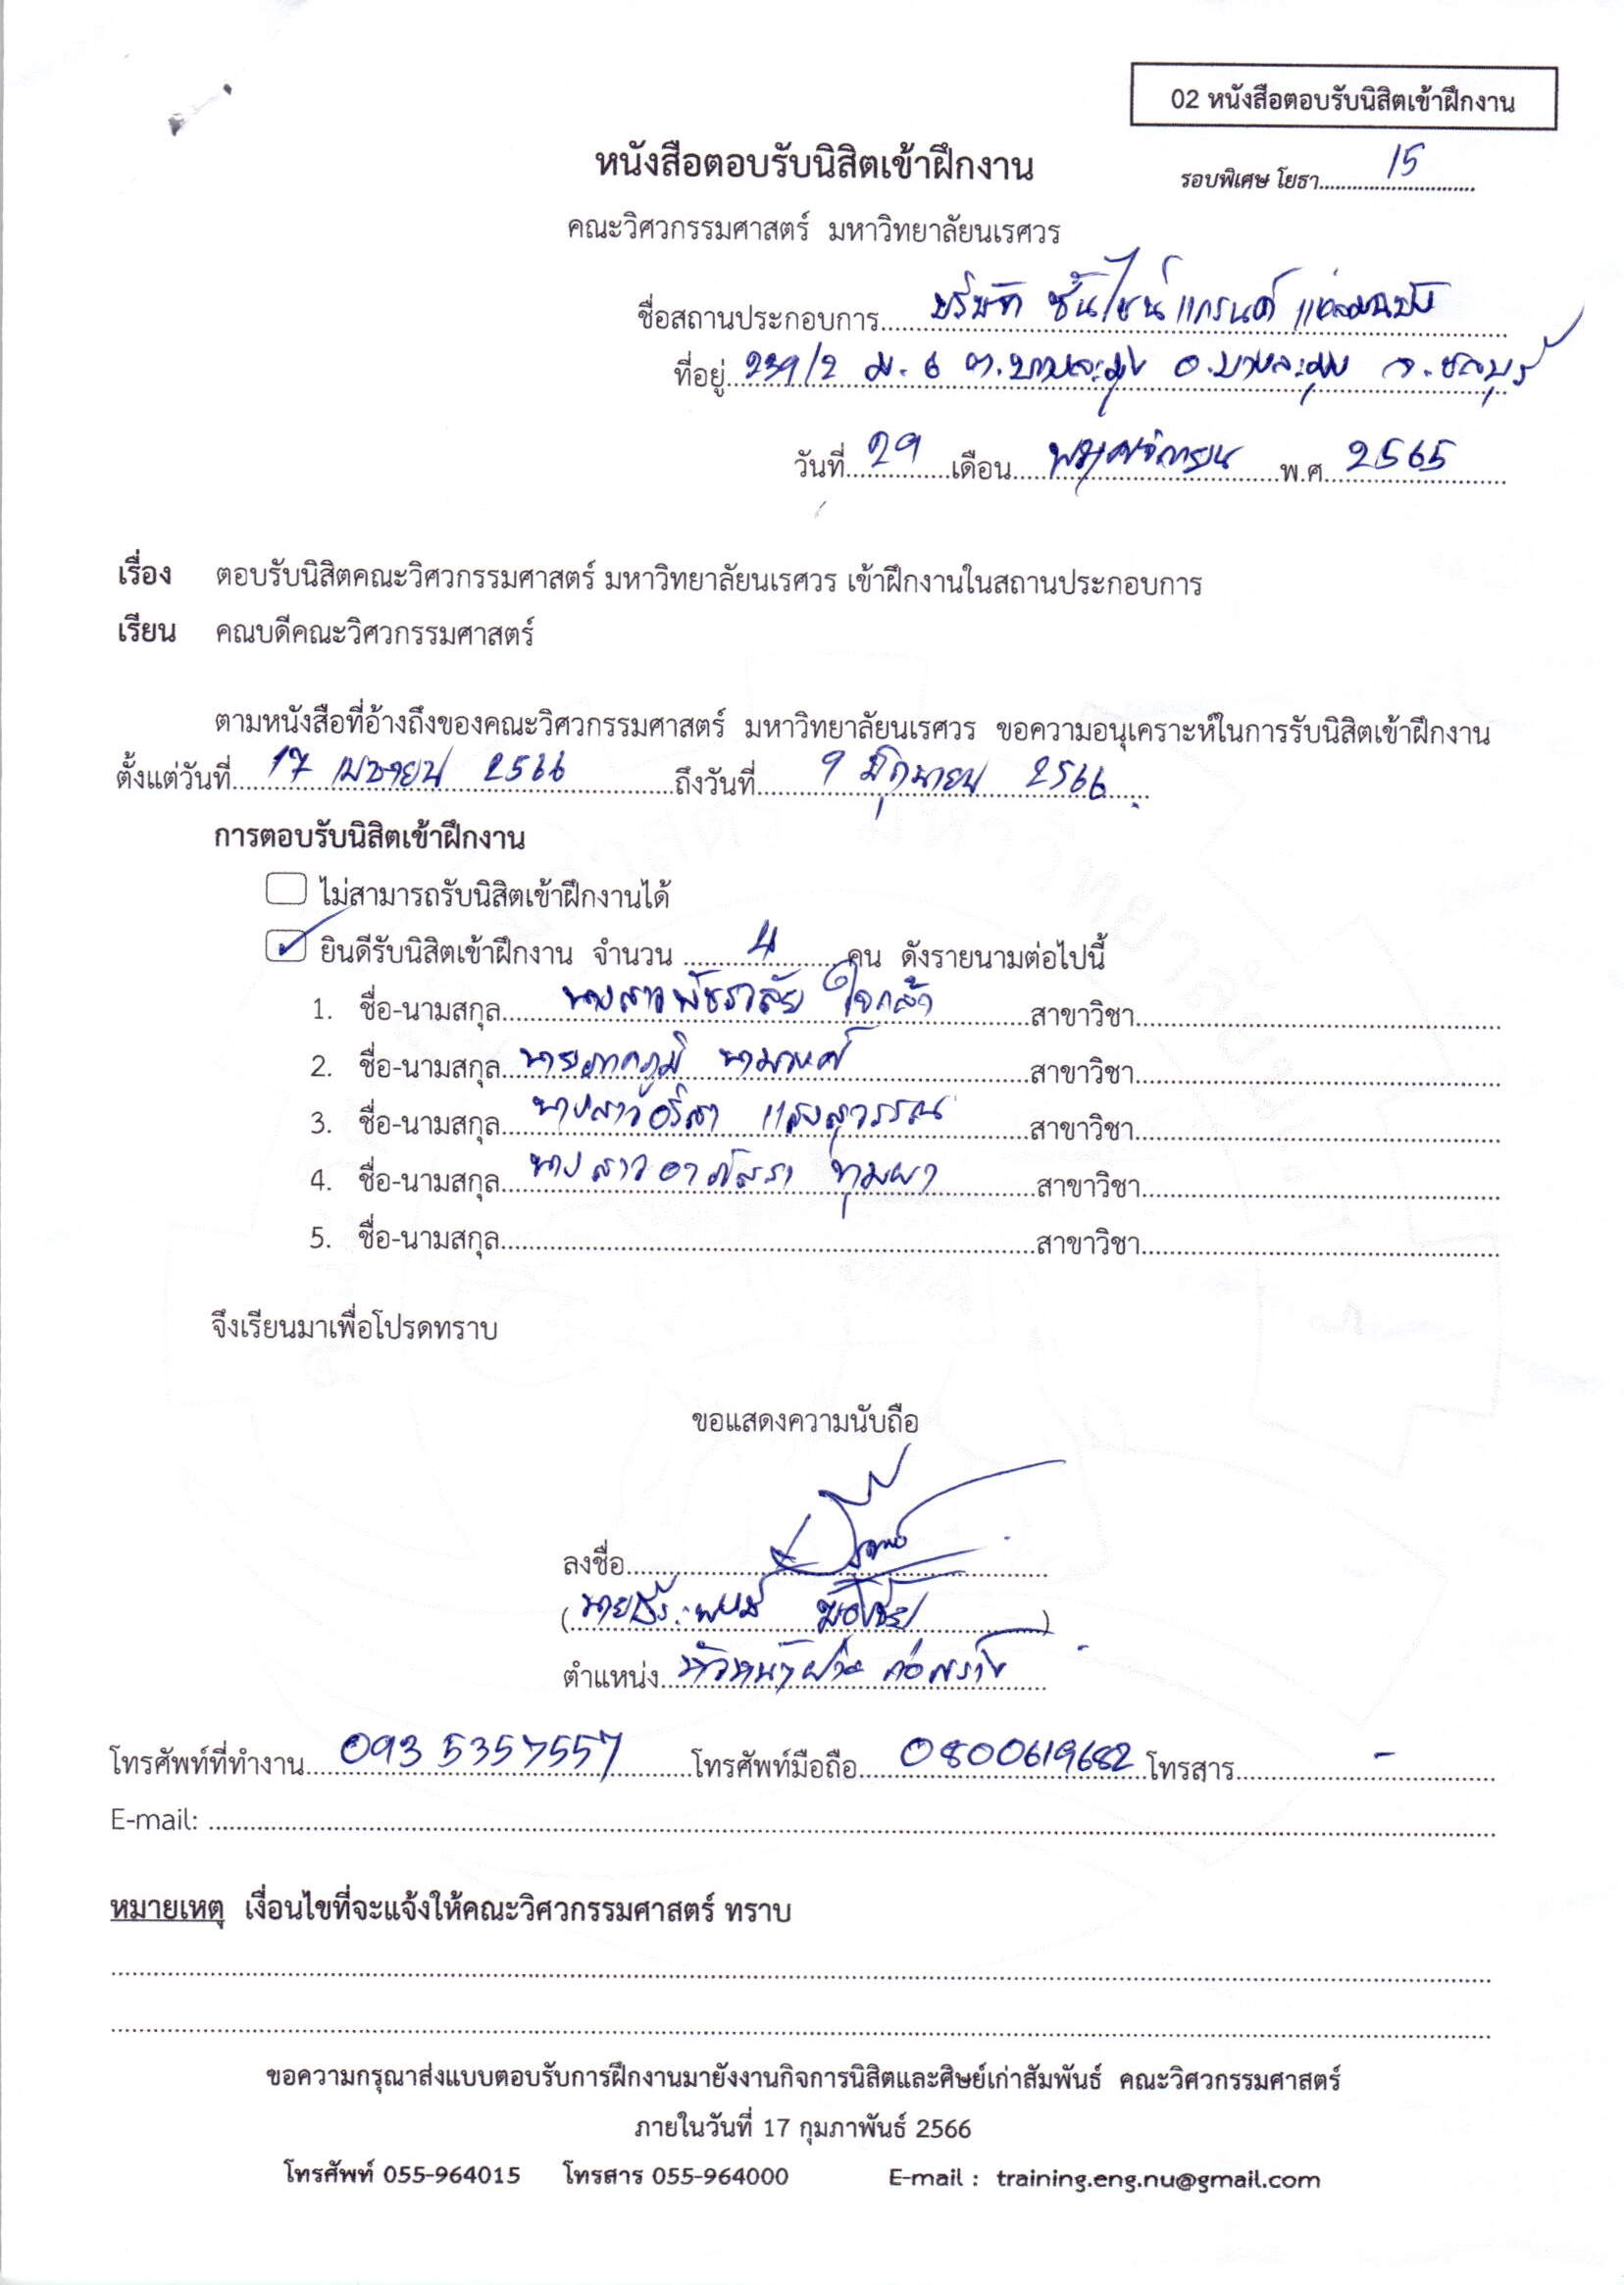 02 หนังสือตอบรับนิสิตเข้าฝึกงาน
หนังสือตอบรับนิสิตเข้าฝึกงาน
รอบพิเศษ โยธา 15
คณะวิศวกรรมศาสตร์ มหาวิทยาลัยนเรศวร
ชื่อสถานประกอบการ บริษัท ซันไชน์ แกรนด์ แหลมฉบัง
ที่อยู่ 239/2 ม. 6 ต.บางละมุง อ.บางละมุง จ.ชลบุรี
วันที่ 29 เดือน พฤศจิกายน พ.ศ. 2565
เรื่อง ตอบรับนิสิตคณะวิศวกรรมศาสตร์ มหาวิทยาลัยนเรศวร เข้าฝึกงานในสถานประกอบการ
เรียน คณบดีคณะวิศวกรรมศาสตร์
ตามหนังสือที่อ้างถึงของคณะวิศวกรรมศาสตร์ มหาวิทยาลัยนเรศวร ขอความอนุเคราะห์ในการรับนิสิตเข้าฝึกงาน
ตั้งแต่วันที่ 17 เมษายน 2566 ถึงวันที่ 9 มิถุนายน 2566
การตอบรับนิสิตเข้าฝึกงาน
ไม่สามารถรับนิสิตเข้าฝึกงานได้
ยินดีรับนิสิตเข้าฝึกงาน จำนวน 4 คน ดังรายนามต่อไปนี้
1. ชื่อ-นามสกุล นางสาวพัชราลัย ใจกล้า สาขาวิชา
2. ชื่อ-นามสกุล นายภาคภูมิ นามวงศ์ สาขาวิชา
3. ชื่อ-นามสกุล นางสาวอริสา แสงสุวรรณ สาขาวิชา
4. ชื่อ-นามสกุล นางสาวอาภัสรา ทุมผา สาขาวิชา
5. ชื่อ-นามสกุล สาขาวิชา
จึงเรียนมาเพื่อโปรดทราบ
ขอแสดงความนับถือ
ลงชื่อ
(นาย )
ตำแหน่ง หัวหน้าฝ่าย ก่อสร้าง
โทรศัพท์ที่ทำงาน 093 5357557 โทรศัพท์มือถือ 0800619682 โทรสาร -
E-mail:
หมายเหตุ เงื่อนไขที่จะแจ้งให้คณะวิศวกรรมศาสตร์ ทราบ
ขอความกรุณาส่งแบบตอบรับการฝึกงานมายังงานกิจการนิสิตและศิษย์เก่าสัมพันธ์ คณะวิศวกรรมศาสตร์
ภายในวันที่ 17 กุมภาพันธ์ 2566
โทรศัพท์ 055-964015 โทรสาร 055-964000 E-mail : training.eng.nu@gmail.com